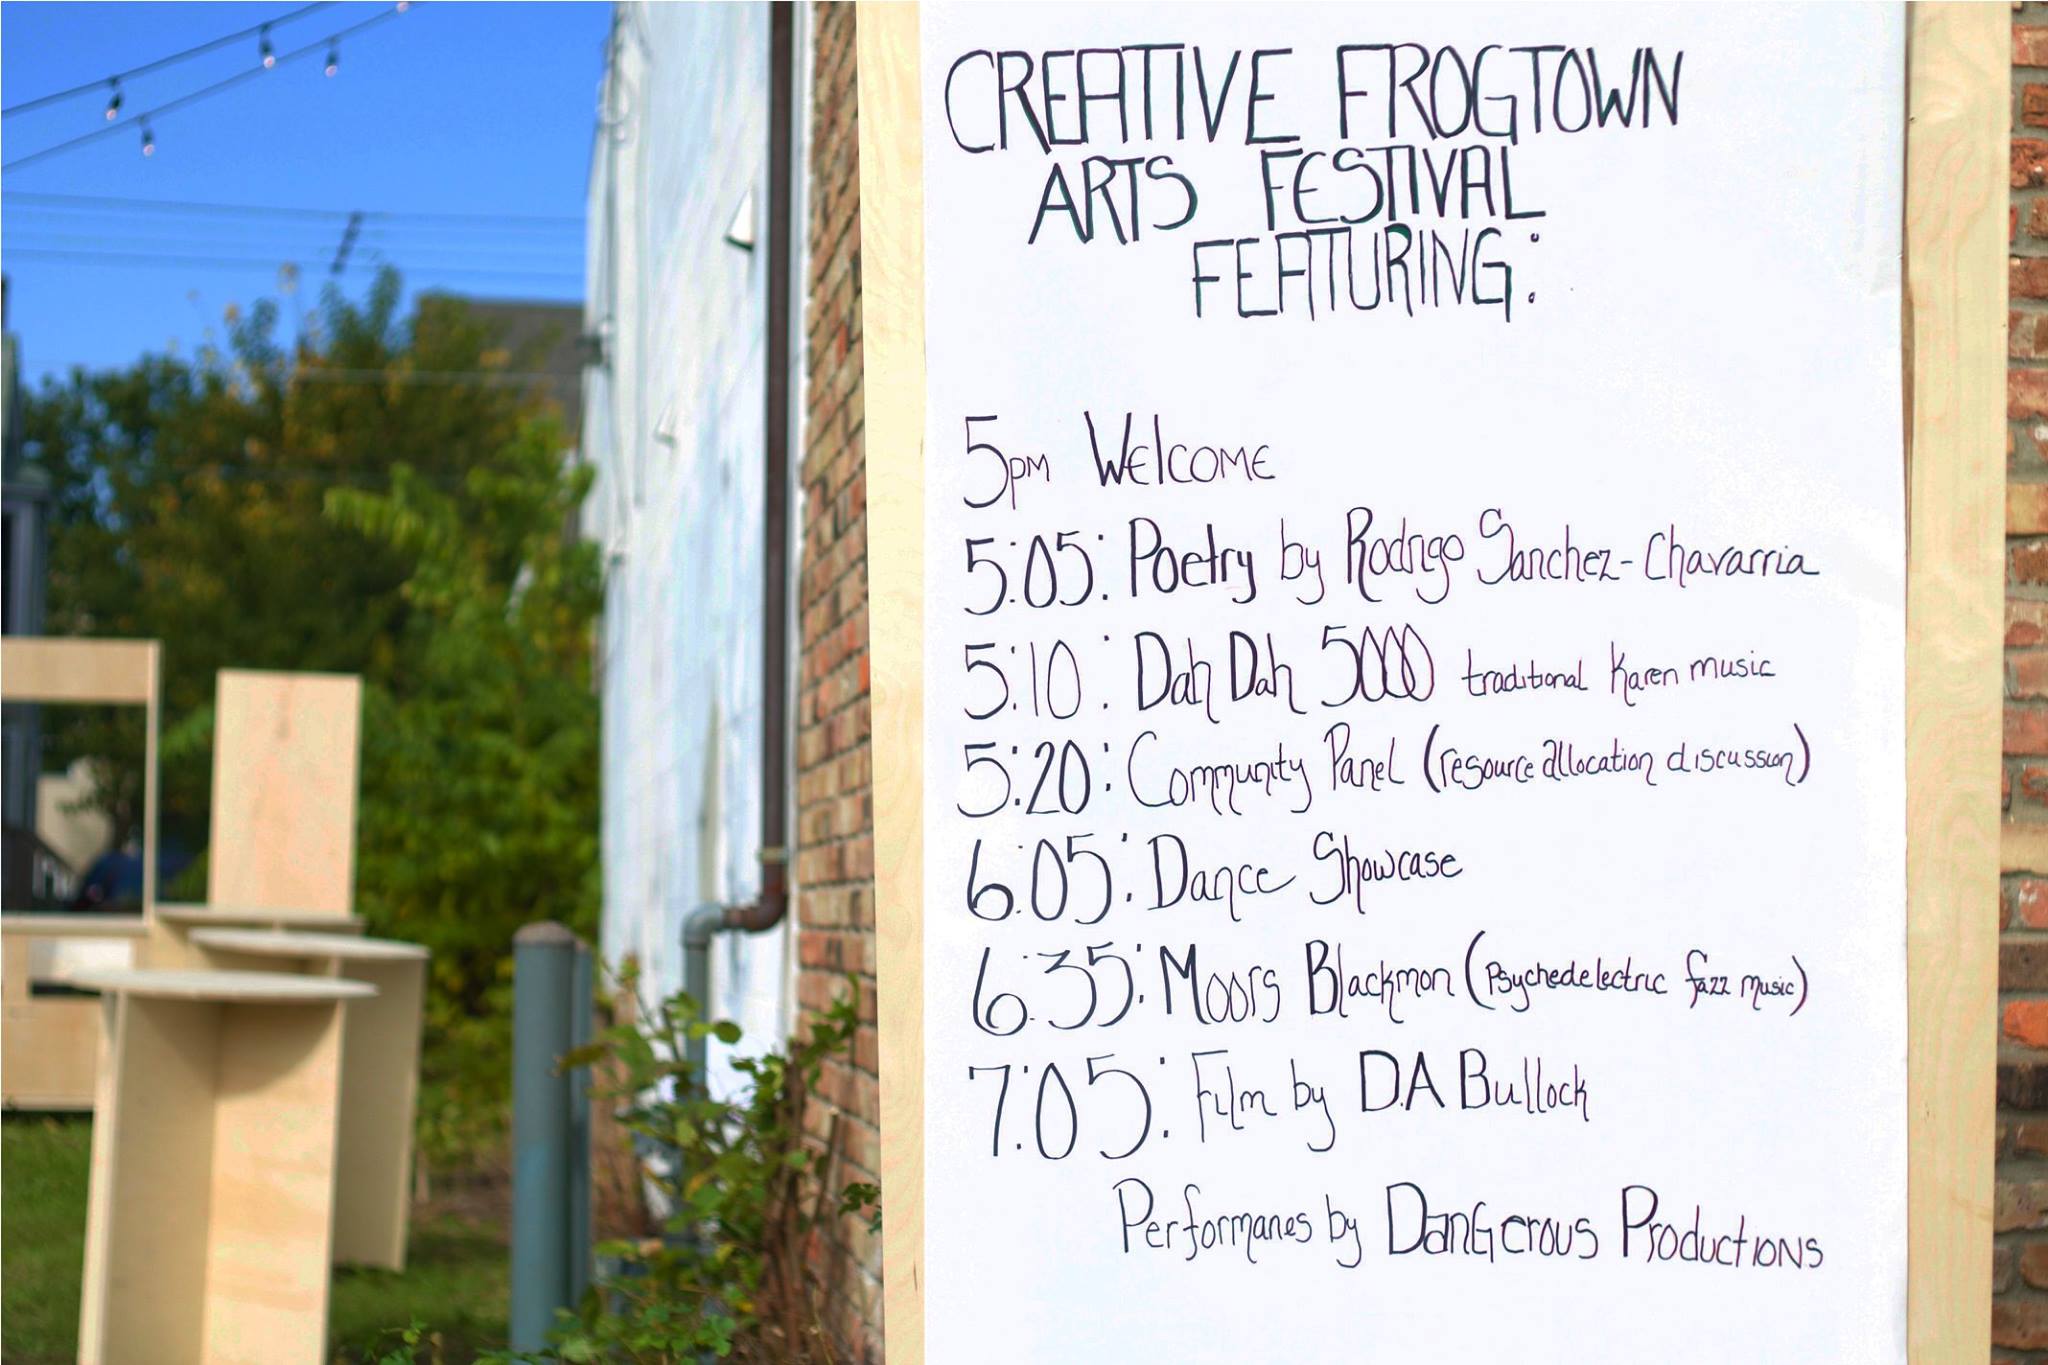 CREATIVE FROGTOWN
ARTS FESTIVAL
FEATURING:
5pm Welcome
5:05: Poetry by Rodrigo Sanchez-Chavarria
5:10: Dah Dah 5000 traditional Karen music
5:20: Community Panel (resource allocation discussion)
6:05: Dance Showcase
6:35: Moors Blackmon (Psychedelectric fazz music)
7:05: Film by D.A Bullock
Performanes by DanGerous Productions